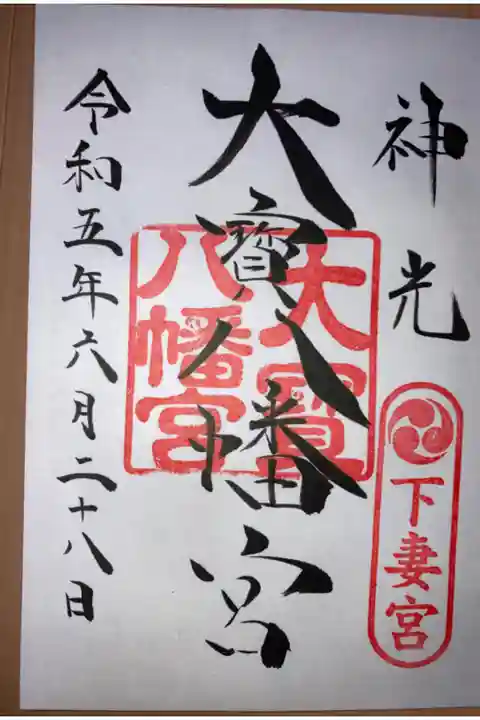 神光
下妻宮
大寳八幡宮
大寳
八幡宮
令和五年六月二十八日